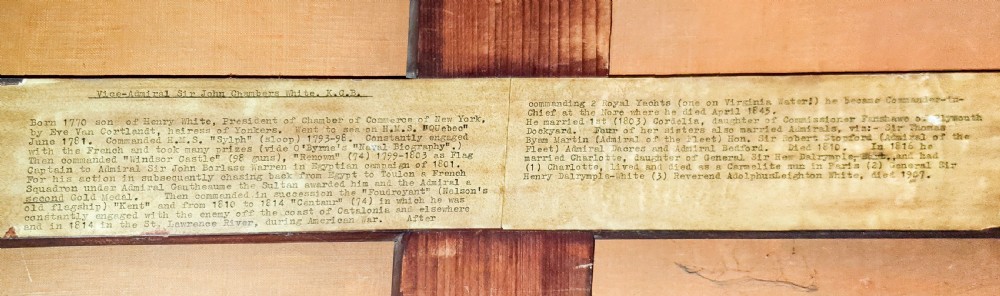 Vice-Admiral Sir John Chambers White. K.C.B.
Born 1770 son of Henry White, President of Chamber of Commerce of New York,
by Eve Van Cortlandt, heiress of Yonkers. Went to sea on H.M.S. "Quebec"
June 1781. Commanded H.M.S. "Sylph" (sloop) 1793-98. Constantly engaged
with the French and took many prizes (vide O'Byrne's "Naval Biography".)
Then commanded "Windsor Castle" (98 guns), "Renown" (74) 1799-1803 as Flag
Captain to Admiral Sir John Borlase Warren in Egyptian campaign of 1801.
For his action in subsequently chasing back from Egypt to Toulon a French
Squadron under Admiral Gautheaume the Sultan awarded him and the Admiral a
second Gold Medal. Then commanded in succession the "Foudroyant" (Nelson's
old flagship) "Kent" and from 1810 to 1814 "Centaur" (74) in which he was
constantly engaged with the enemy off the coast of Catalonia and elsewhere
and in 1814 in the St. Lawrence River, during American War. After
commanding 2 Royal Yachts (one on Virginia Water!) he became Commander-in-
Chief at the Nore where he died April 1845.
He married 1st (1803) Cordelia, daughter of Commissioner Fanshawe of Plymouth
Dockyard. Four of her sisters also married Admirals, viz:- Sir Thomas
Byam Martin (Admiral of the Fleet) Hon. Sir Robert Stopford (Admiral of the
Fleet) Admiral Dacres and Admiral Bedford. Died 1810. In 1816 he
married Charlotte, daughter of General Sir Hew Dalrymple, and had
(1) Charlotte, lived and died a Carmelite nun in Paris (2) General Sir
Henry Dalrymple-White (3) Reverend Adolphus Leighton White, died 1907.